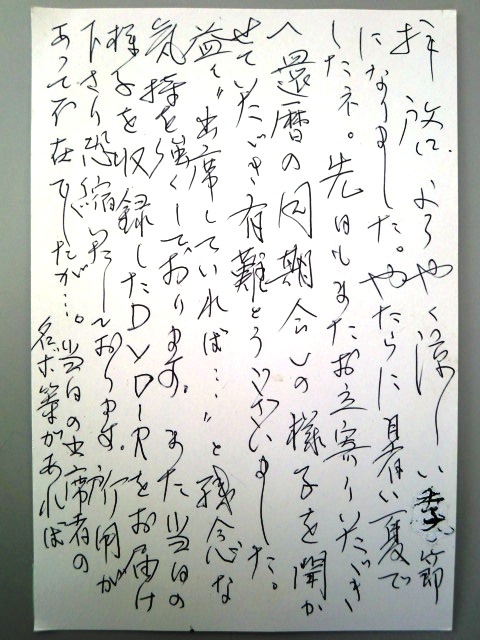 拝啓、ようやく涼しい季節
になりました。やたらに暑い夏で
したネ。先日もまたお立寄りいただき
〈還暦の同期会〉の様子を聞か
せていただき有難とうございました。
益々〝出席していれば…〟と残念な
気持を強くしております。また当日の
様子を収録したDVD-Rをお届け
下さり恐縮致しております。所用が
あって不在でしたが…。当日の出席者の
名ボ等があれば